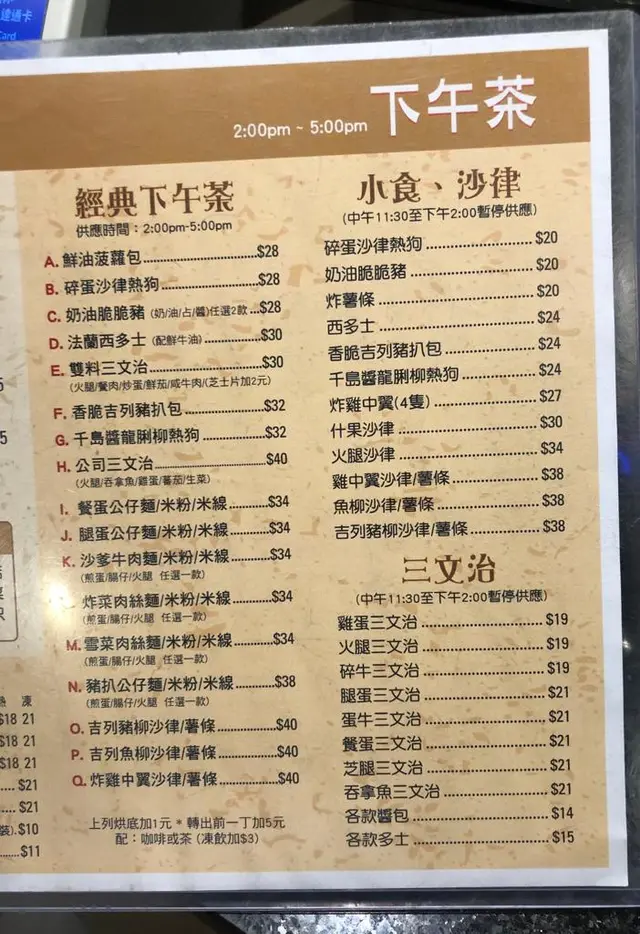 達通卡
Card
下午茶
2:00pm ~ 5:00pm
經典下午茶
供應時間：2:00pm-5:00pm
A. 鮮油菠蘿包..........$28
B. 碎蛋沙律熱狗..........$28
C. 奶油脆脆豬 (奶/油/占/醬)任選2款...$28
D. 法蘭西多士 (配鮮牛油)..........$30
E. 雙料三文治..........$30
(火腿/餐肉/炒蛋/鮮茄/咸牛肉/(芝士片加2元)
F. 香脆吉列豬扒包..........$32
G. 千島醬龍脷柳熱狗..........$32
H. 公司三文治..........$40
(火腿/吞拿魚/雞蛋/蕃茄/生菜)
I. 餐蛋公仔麵/米粉/米線..........$34
J. 腿蛋公仔麵/米粉/米線..........$34
K. 沙爹牛肉麵/米粉/米線..........$34
(煎蛋/腸仔/火腿 任選一款)
炸菜肉絲麵/米粉/米線..........$34
(煎蛋/腸仔/火腿 任選一款)
M. 雪菜肉絲麵/米粉/米線..........$34
(煎蛋/腸仔/火腿 任選一款)
N. 豬扒公仔麵/米粉/米線..........$38
(煎蛋/腸仔/火腿 任選一款)
O. 吉列豬柳沙律/薯條..........$40
P. 吉列魚柳沙律/薯條..........$40
Q. 炸雞中翼沙律/薯條..........$40
上列烘底加1元 * 轉出前一丁加5元
配：咖啡或茶 (凍飲加$3)
小食、沙律
(中午11:30至下午2:00暫停供應)
碎蛋沙律熱狗..........$20
奶油脆脆豬..........$20
炸薯條..........$20
西多士..........$24
香脆吉列豬扒包..........$24
千島醬龍脷柳熱狗..........$24
炸雞中翼(4隻)..........$27
什果沙律..........$30
火腿沙律..........$34
雞中翼沙律/薯條..........$38
魚柳沙律/薯條..........$38
吉列豬柳沙律/薯條..........$38
三文治
(中午11:30至下午2:00暫停供應)
雞蛋三文治..........$19
火腿三文治..........$19
碎牛三文治..........$19
腿蛋三文治..........$21
蛋牛三文治..........$21
餐蛋三文治..........$21
芝腿三文治..........$21
吞拿魚三文治..........$21
各款醬包..........$14
各款多士..........$15
5
5
熱 凍
$18 21
$18 21
$18 21
$21
$21
裝).$10
$11